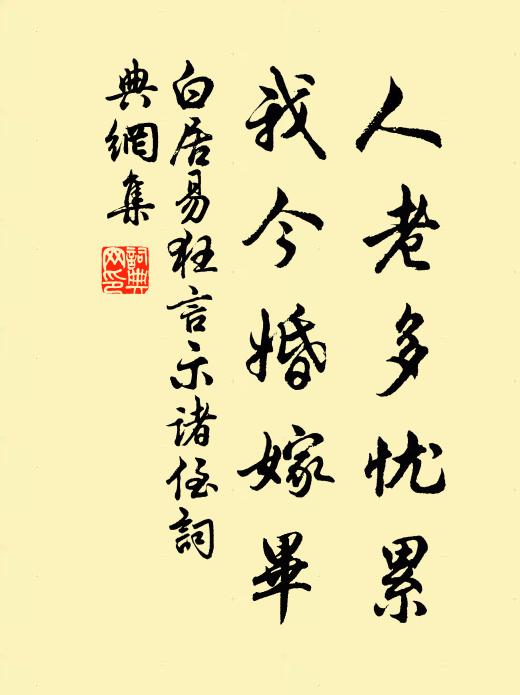 人老多忧累
我今婚嫁畢
白居易狂言示诸侄詞
典網集
詞典
网印